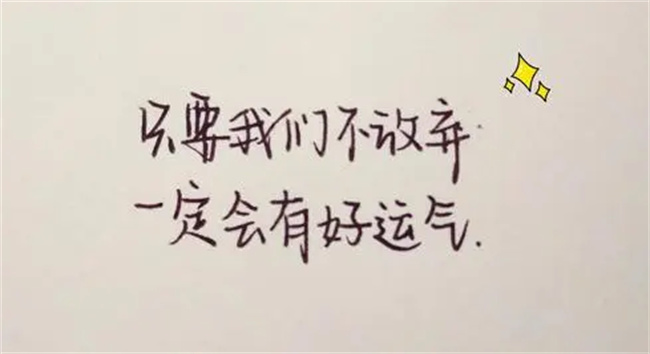 只要我们不放弃.
一定会有好运气.